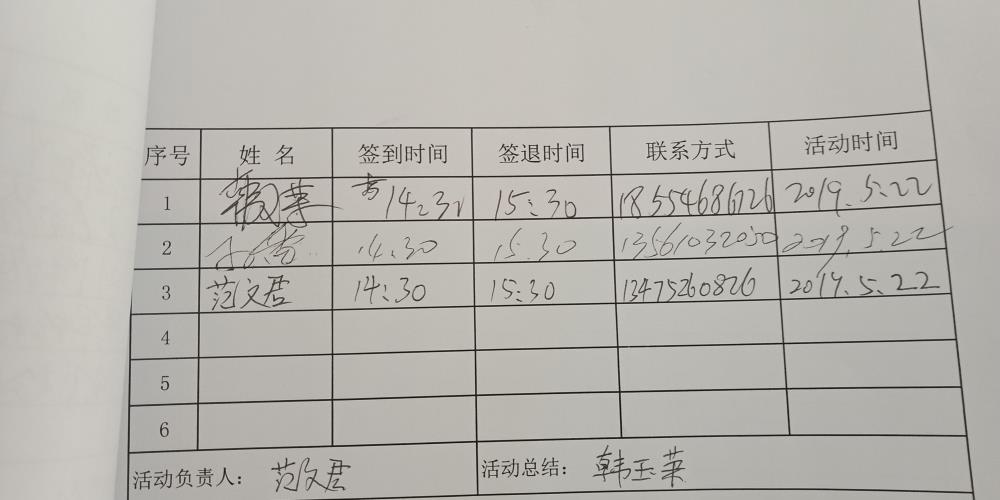 序号 姓名 签到时间 签退时间 联系方式 活动时间
1 14:30 15:30 18554686726 2019.5.22
2 14.30 15.30 13561032050 2019.5.22
3 范文君 14:30 15:30 13475260826 2019.5.22
4
5
6
活动负责人： 范文君 活动总结： 韩玉莱